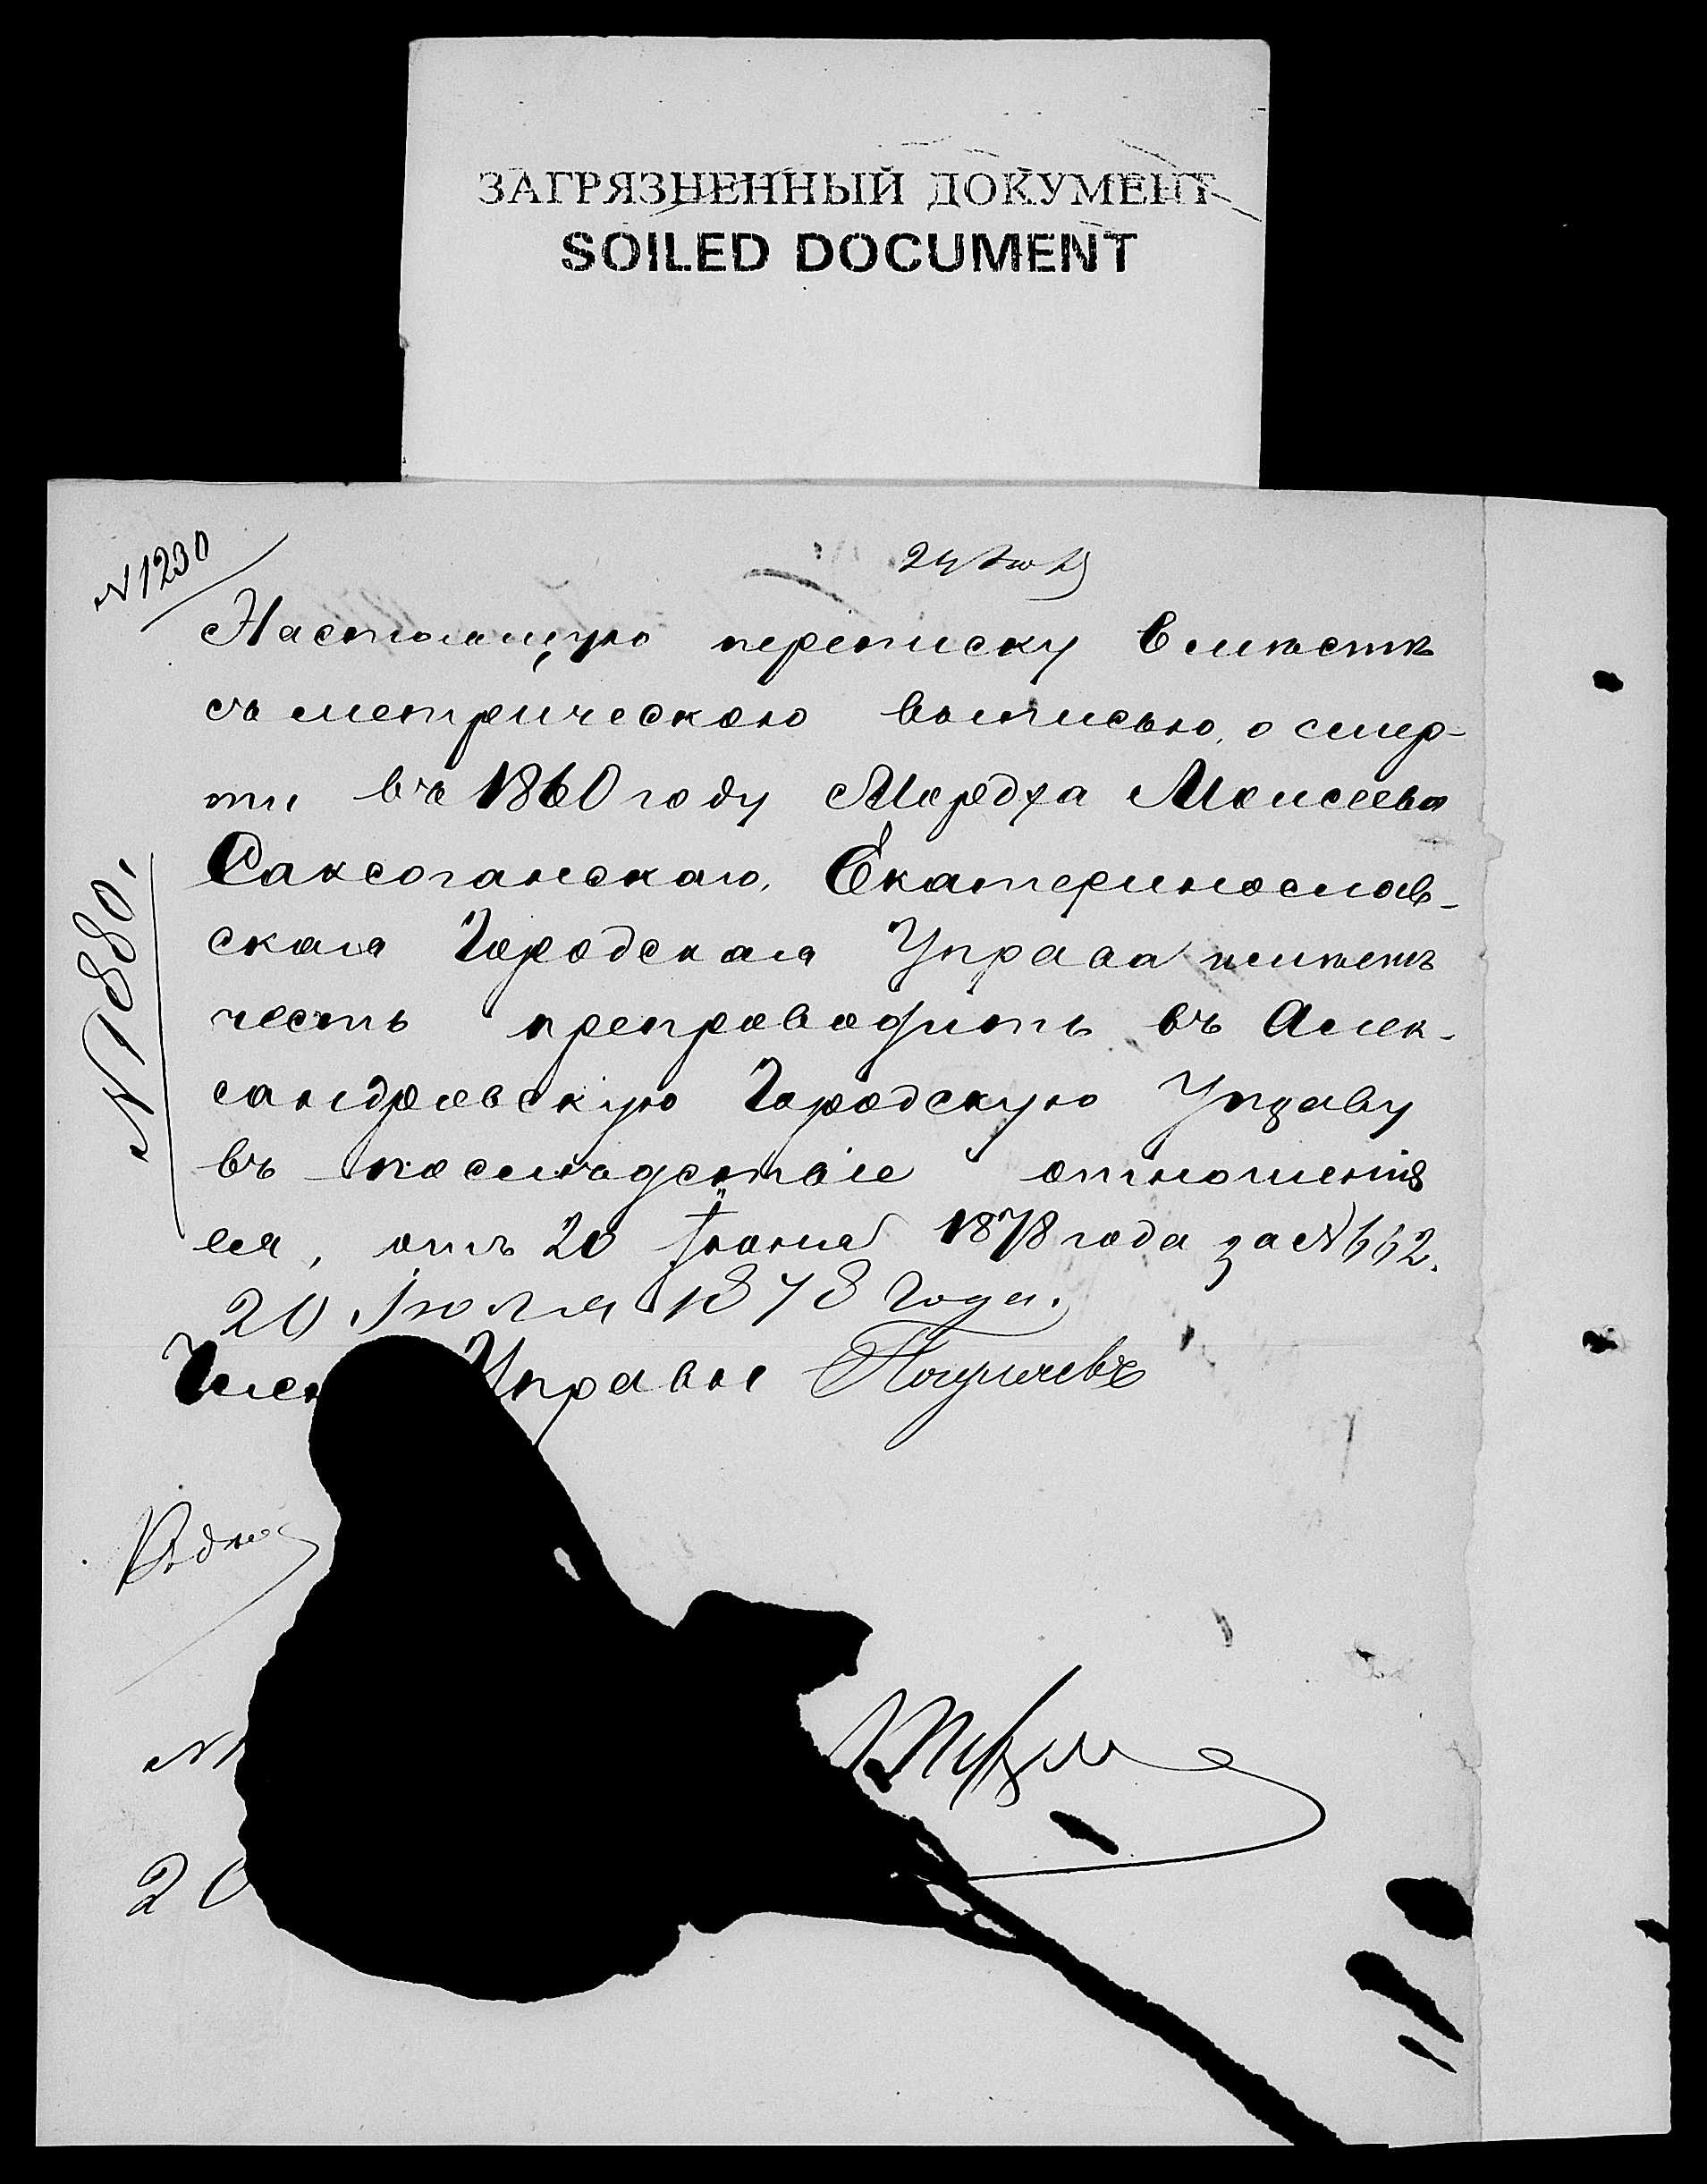 ЗАГРЯЗНЕННЫЙ ДОКУМЕНТ
SOILED DOCUMENT
N 1230
24 Июля
Настоящую переписку вместѣ
съ метрическою выписью, о смер-
ти въ 1860 году Мордха Моисеева
Саксоганскаго, Екатеринослав-
ская Городская Управа имѣетъ
честь препроводить въ Алек-
сандровскую Городскую Управу
въ послѣдствіе отношенія
ея, отъ 20 Іюня 1878 года за N 662.
20 Іюля 1878 года.
Член Управы
N 1880.
N 1
20